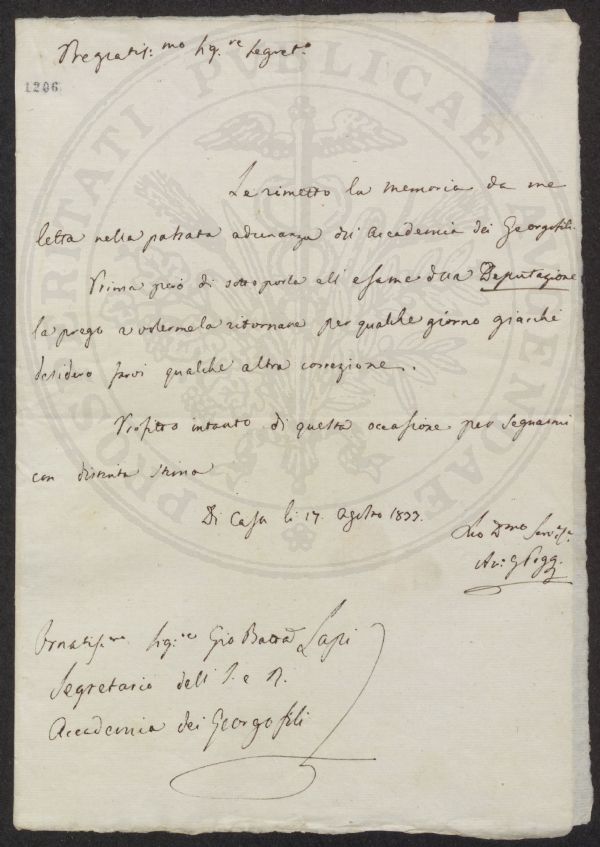 Pregiatis:mo Sig:re Segret:o
1206
Le rimetto la memoria da me
letta nella passata adunanza dell'Accademia dei Georgofili.
Prima però di sottoporla all'esame della Deputazione
la prego a volermela ritornare per qualche giorno giacchè
desidero farvi qualche altra correzione.
Profitto intanto di questa occasione per segnarmi
con distinta stima
Di Casa li 17. Agosto 1833.
Suo D:mo Serv:e
Av: G Pogg.
Ornatis:mo Sig:re Gio Batta Lapi
Segretario dell'I. e R.
Accademia dei Georgofili
PROSPERITATI PUBLICAE AUGENDAE